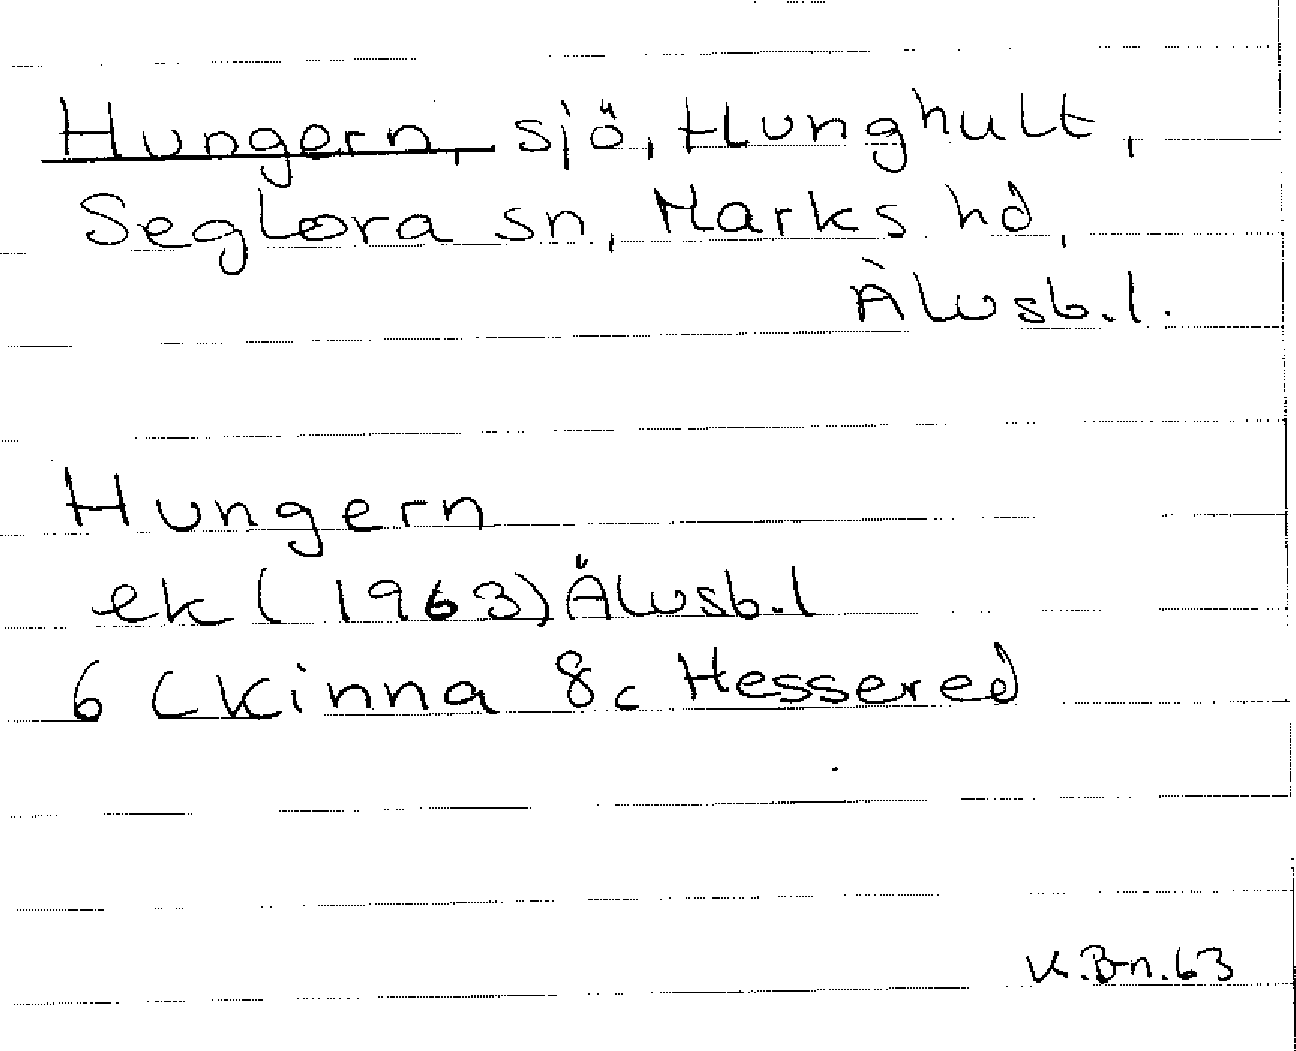 Hungern, sjö, Hunghult,
Seglora sn, Marks hd,
Älvsb.l.
Hungern
ek (1963) Älvsb.l
6 C Kinna 8c Hessered
K.B-n.63